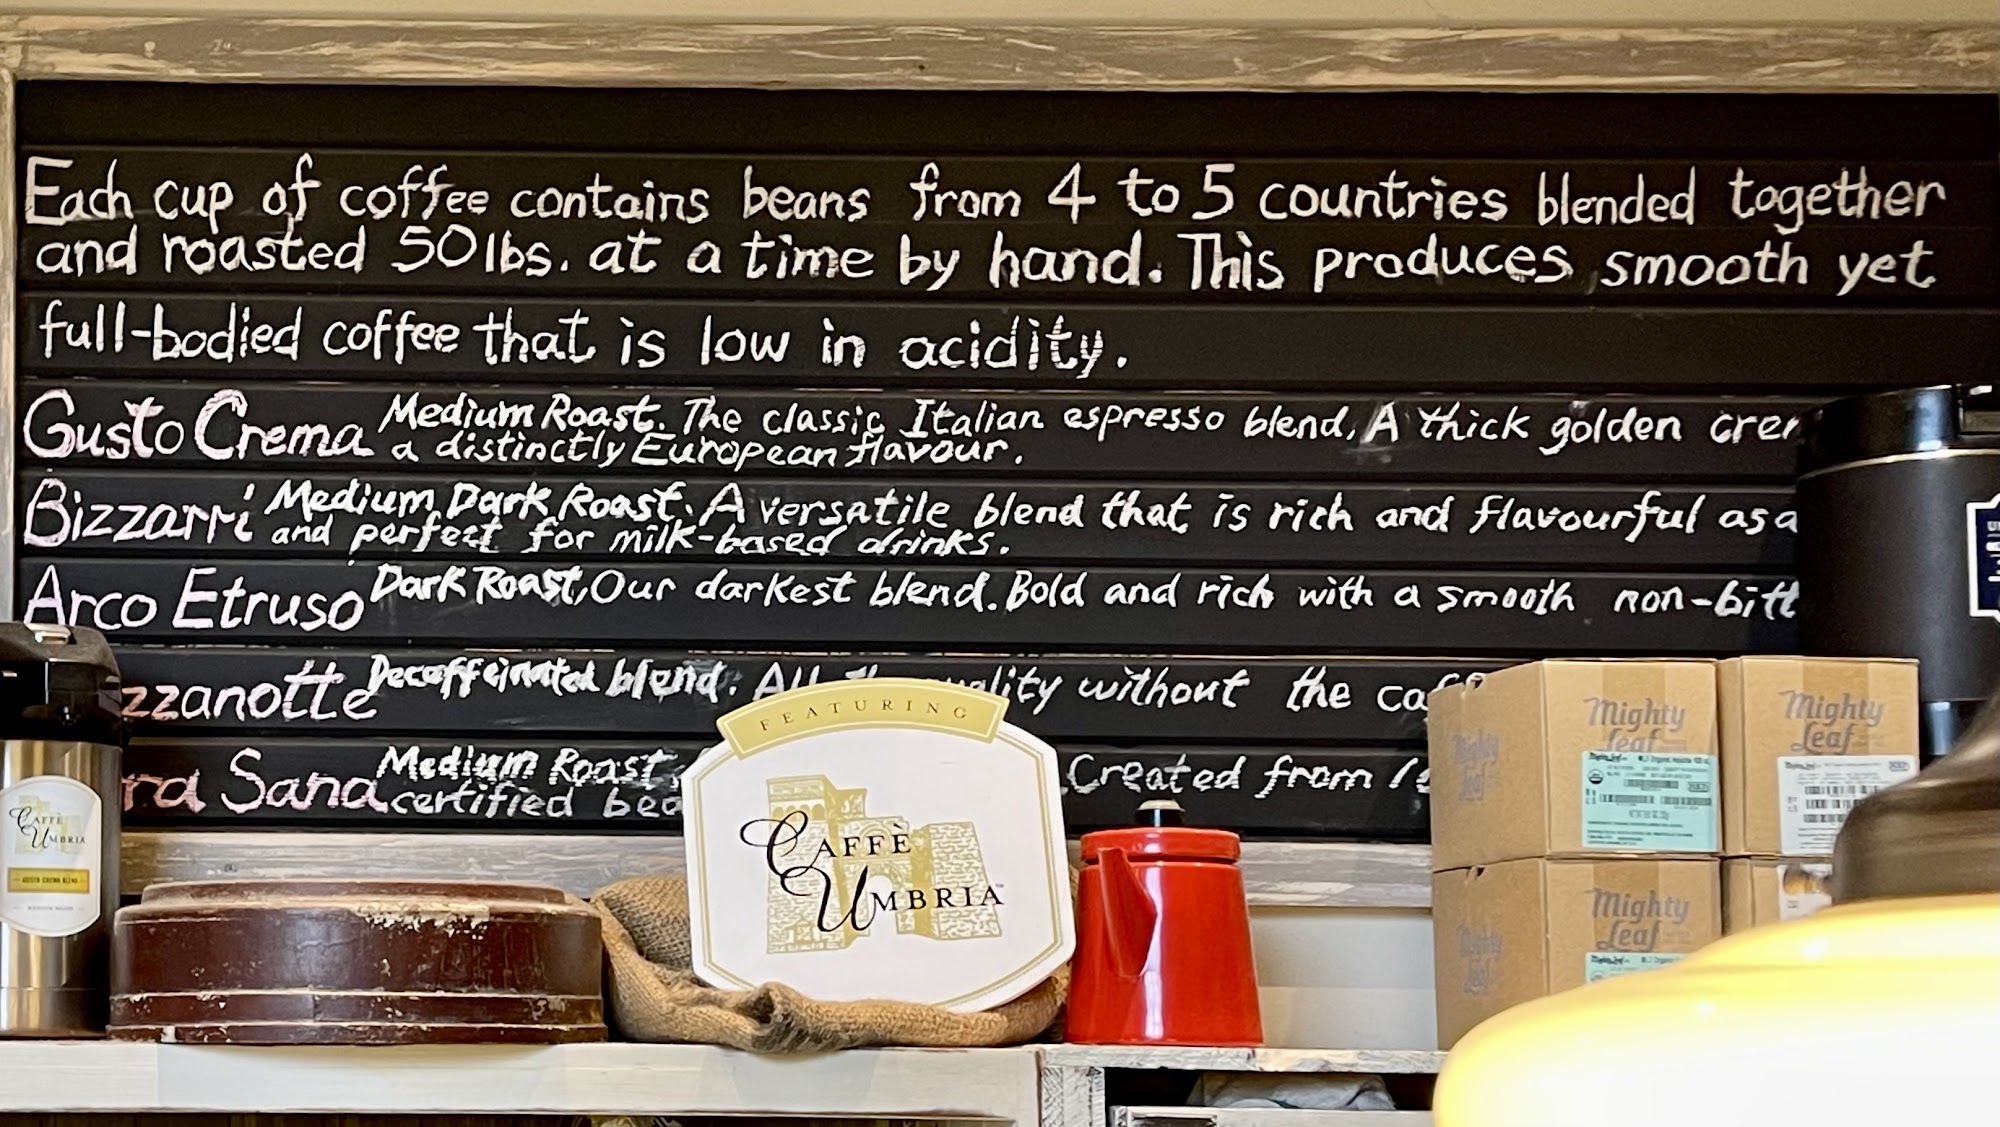 Each cup of coffee contains beans from 4 to 5 countries blended together
and roasted 50 lbs. at a time by hand. This produces smooth yet
full-bodied coffee that is low in acidity.
Gusto Crema Medium Roast. The classic Italian espresso blend. A thick golden
a distinctly European flavour.
Bizzarri Medium Dark Roast. A versatile blend that is rich and flavourful as a
and perfect for milk-based drinks.
Arco Etruso Dark Roast, Our darkest blend. Bold and rich with a smooth non-
Decaffeinated blend. All without the
Sana Medium Roast, Created from
certified
FEATURING
CAFFÈ
UMBRIA™
CAFFÈ
UMBRIA
GUSTO CREMA BLEND
MEDIUM ROAST
Mighty
Leaf
Mighty
Leaf
Mighty
Leaf
Mighty
Leaf
Mighty
Leaf